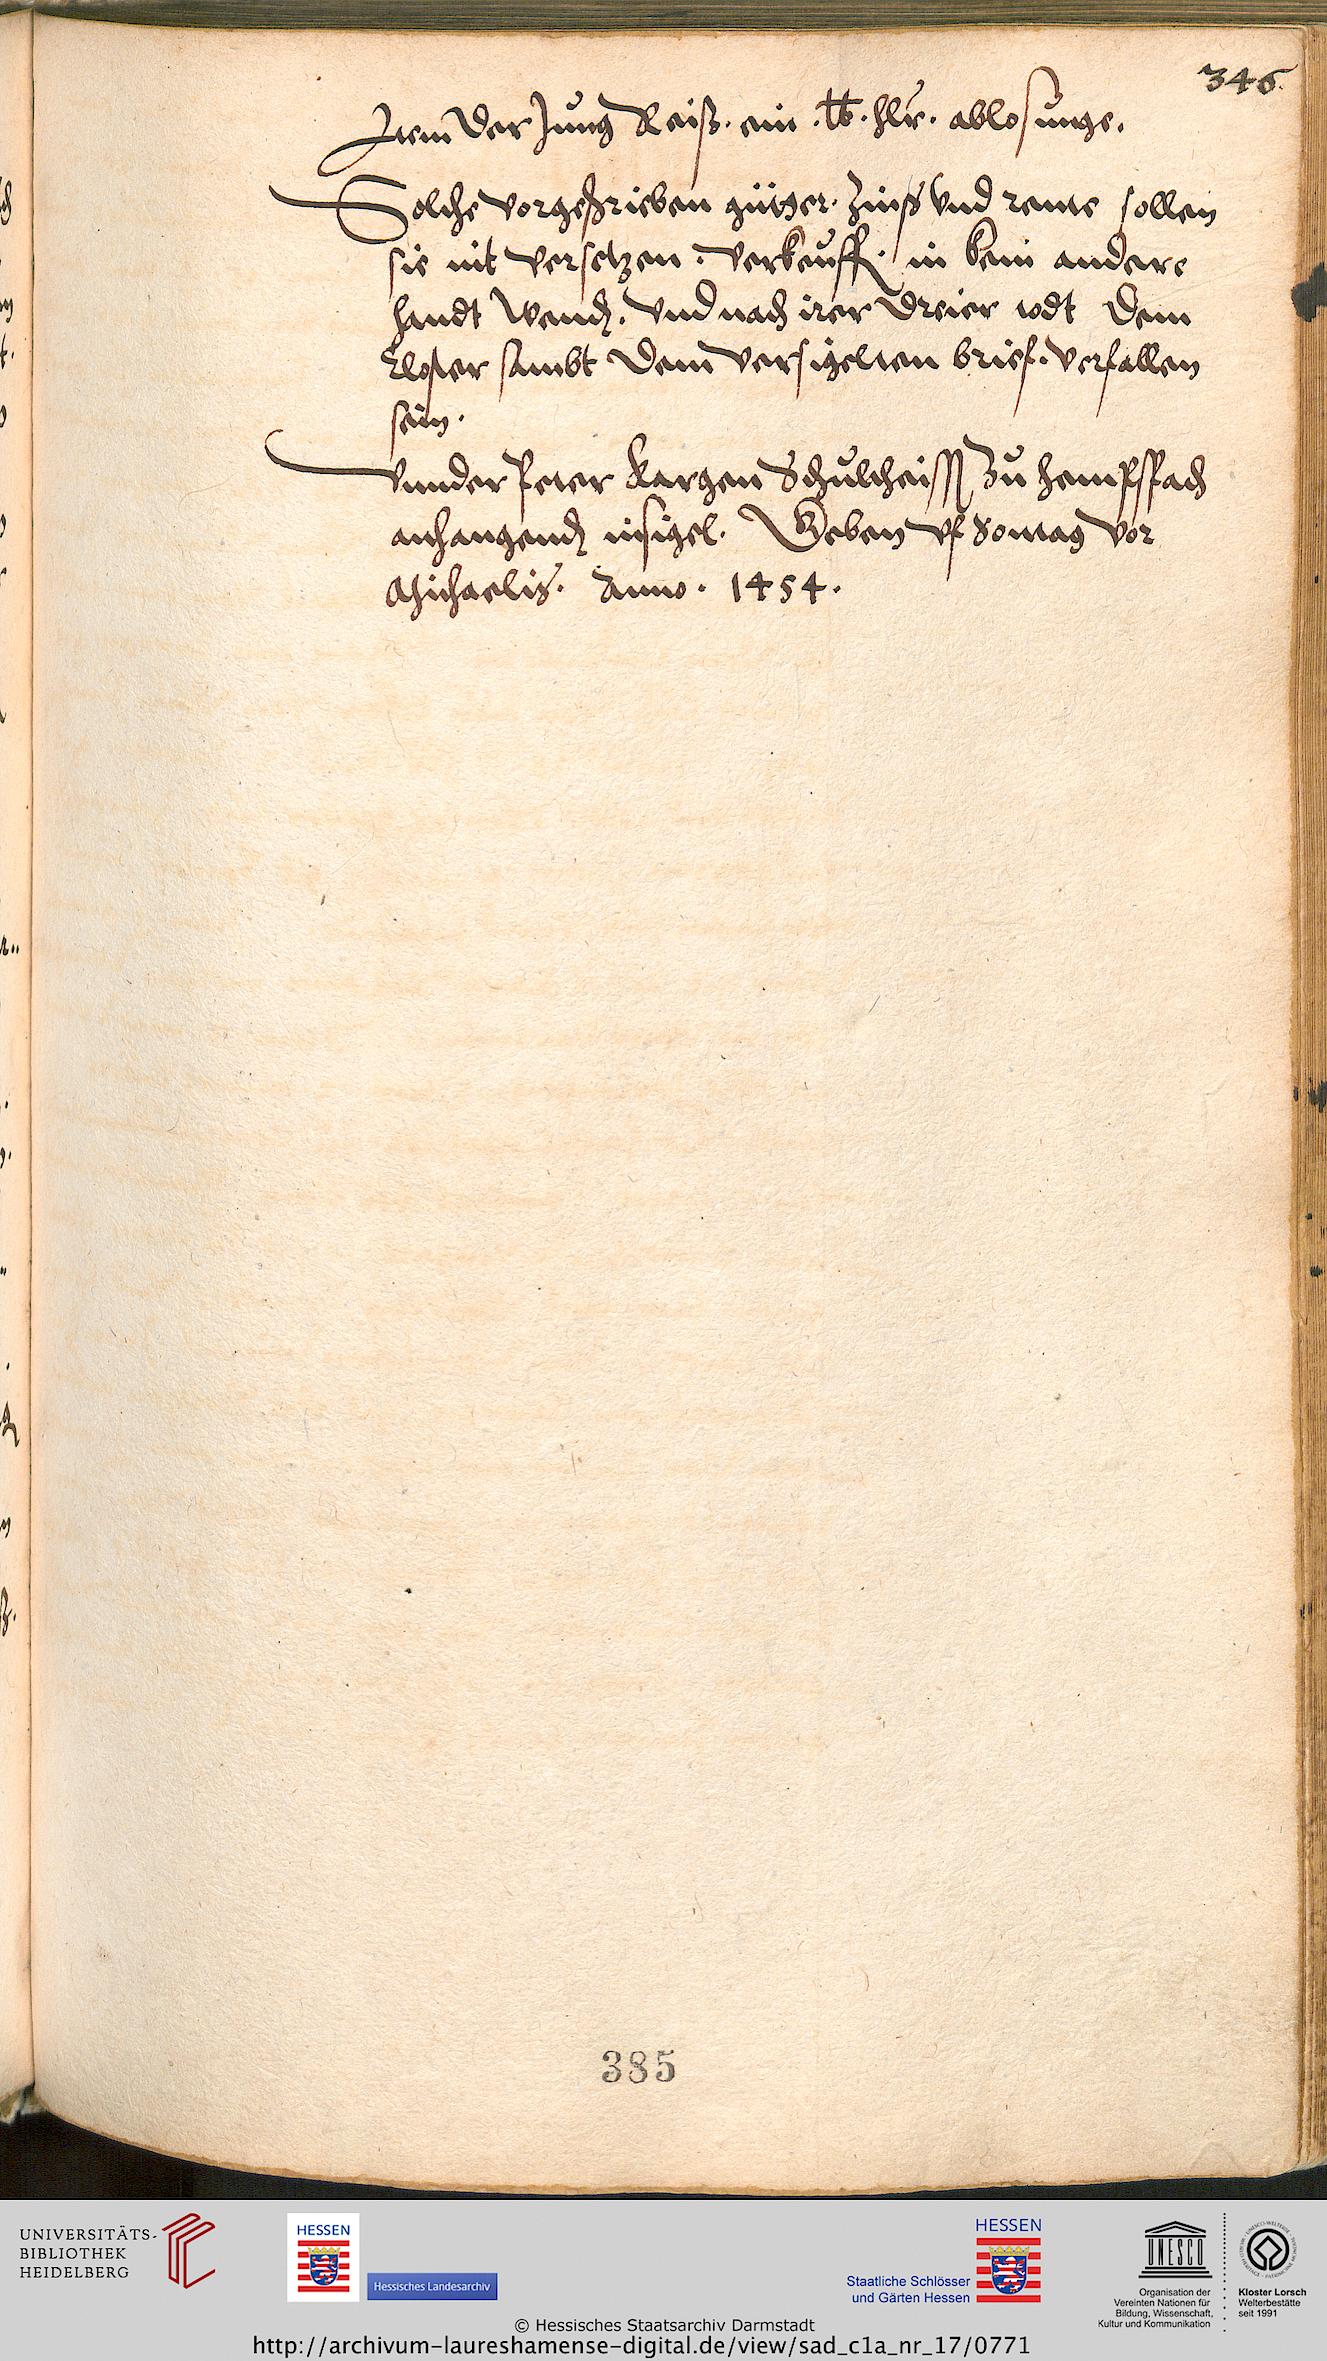 346.
Item der Jung Reiß. ein .lb. hlr. ablosunge.
Solche vorgeschrieben gütger. Zinß vnd rente sollen
sie nit versetzen. verkeuff. in kein andere
handt wend. vnd nach irer dreier todt dem
Kloster sambt dem versigelten brief. verfallen
sein.
Vnnder Peter Kargen Schultheiss zu hempspach
anhangend insigel. Geben vf Sontag vor
Michaelis. Anno. 1454.
385
UNIVERSITÄTS-
BIBLIOTHEK
HEIDELBERG
HESSEN
Hessisches Landesarchiv
HESSEN
Staatliche Schlösser
und Gärten Hessen
UNESCO
Organisation der
Vereinten Nationen für
Bildung, Wissenschaft,
Kultur und Kommunikation
Kloster Lorsch
Welterbestätte
seit 1991
© Hessisches Staatsarchiv Darmstadt
http://archivum-laureshamense-digital.de/view/sad_c1a_nr_17/0771